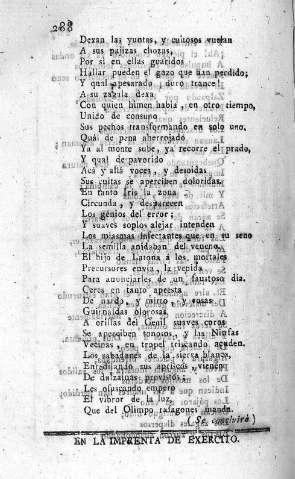 268
Dexan las yuntas, y cuitosos vuelan
A sus pajizas chozas,
Por si en ellas guaridos
Hallar pueden el gazo que han perdido;
Y qual apesarado ¡duro trance!
A su zagala dexa,
Con quien himen habia, en otro tiempo,
Unido de consuno
Sus pechos transformando en solo uno.
Quál de pena aherrojado
Ya al monte sube, ya recorre el prado,
Y qual de pavorido
Acá y allá voces, y desoidas
Sus cuitas se aperciben doloridas.
En tanto Iris la zona
Circunda, y desparecen
Los génios del error;
Y suaves soplos alejar intenden
Los miasmas infectantes que a su seno
La semilla anidaban del veneno.
El hijo de Latona á los mortales
Precursores envia, la venida
Para anunciarles de un faustoso dia.
Ceres en tanto apresta
De nardo, y mirto y rosas
Guirnaldas olorosas.
A orillas del Genil suaves coros
Se aperciben sonosos, y las Ninfas
Vecinas, en tropel triscando acuden.
Los sabadanes de la sierra blanca,
Enristrando sus apricos, vienen
De dulzainas provistos.
Les ofuscando empero
El vibror de la luz,
Que del Olimpo rafagones manda.
(Se concluirá)
EN LA IMPRENTA DE EXERCITO.